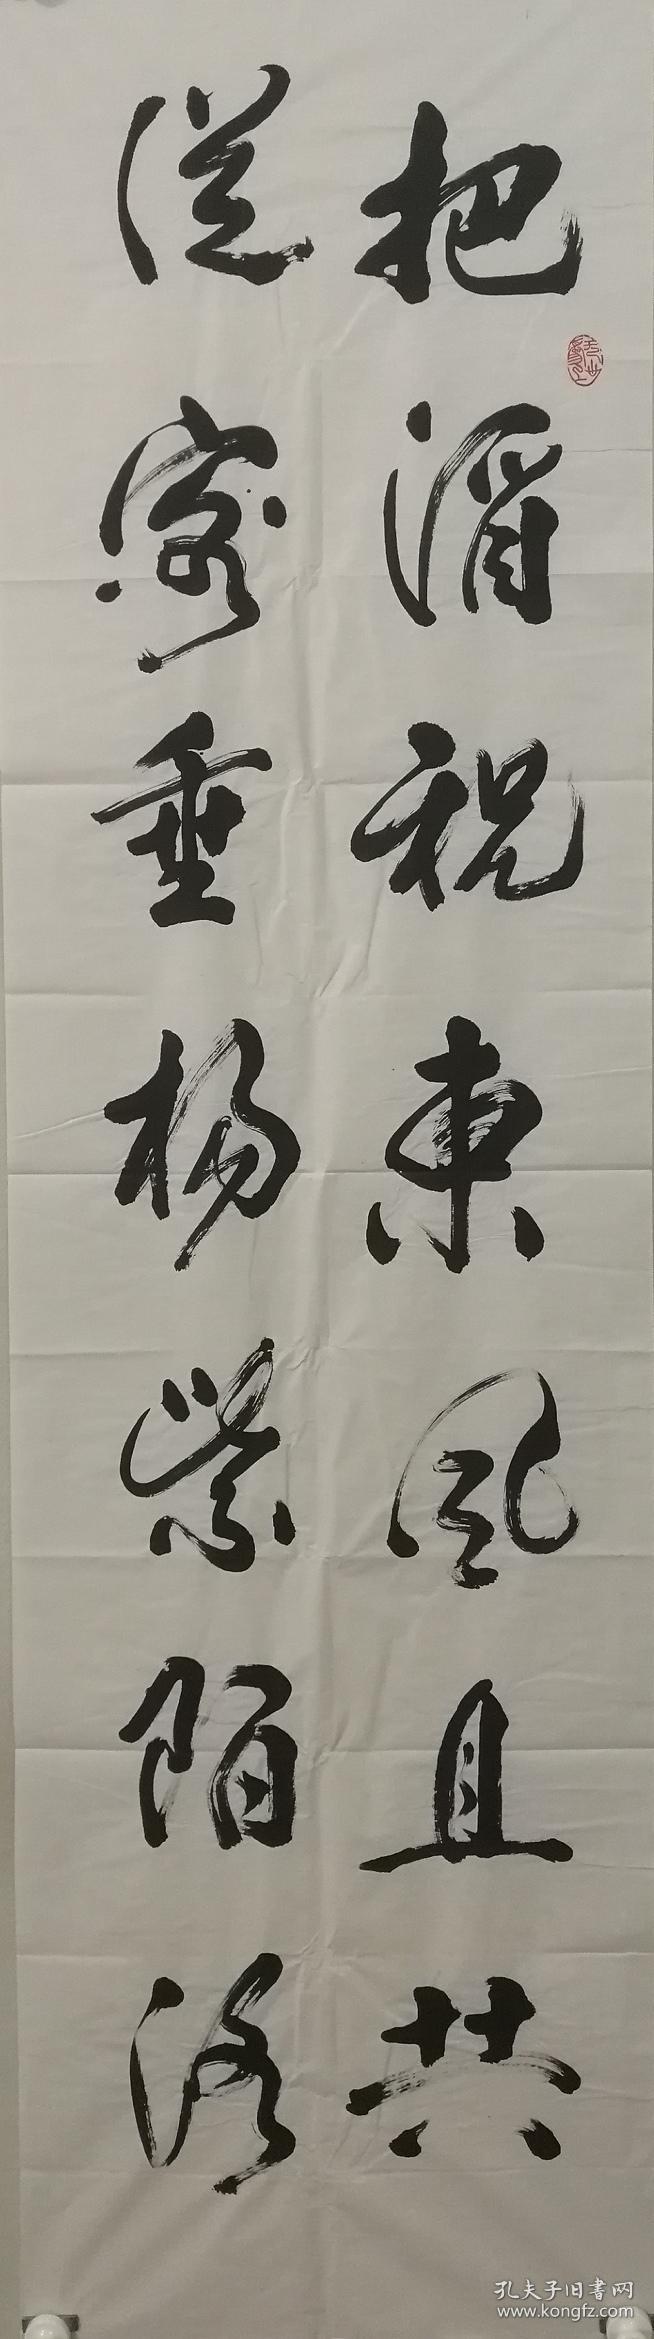 把酒祝東風且共
從容垂楊紫陌洛
孔夫子旧書网
www.kongfz.com